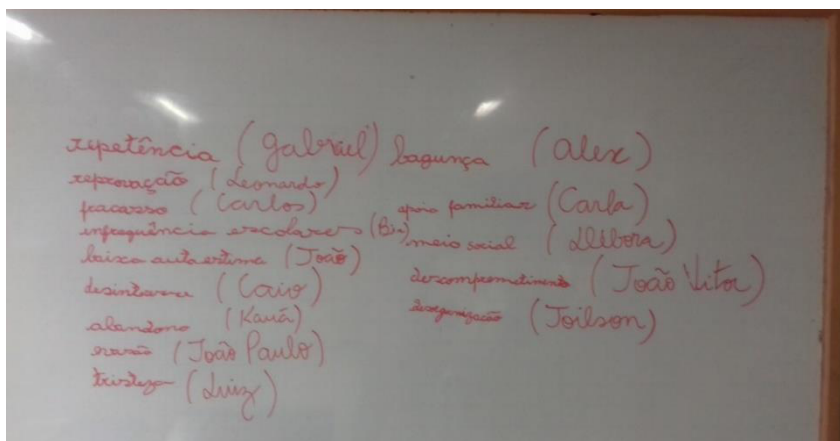 repetência (Gabriel)
reprovação (Leonardo)
fracasso (Carlos)
infrequência escolares (Bia)
baixa autoestima (João)
desinteresse (Caio)
abandono (Kauã)
evasão (João Paulo)
tristeza (Luiz)
bagunça (Alex)
apoio familiar (Carla)
meio social (Débora)
descomprometimento (João Vitor)
desorganização (Joilson)